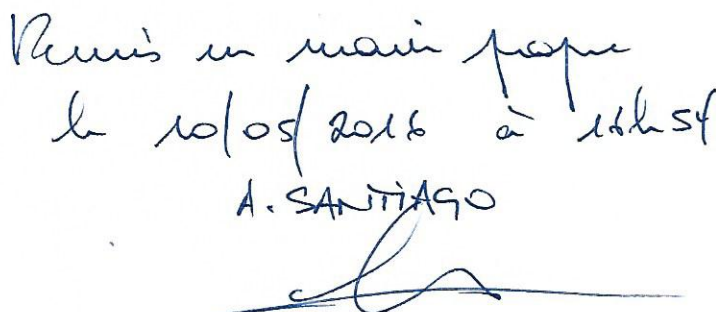 Remis en main propre
le 10/05/2016 à 16h54
A. SANTIAGO